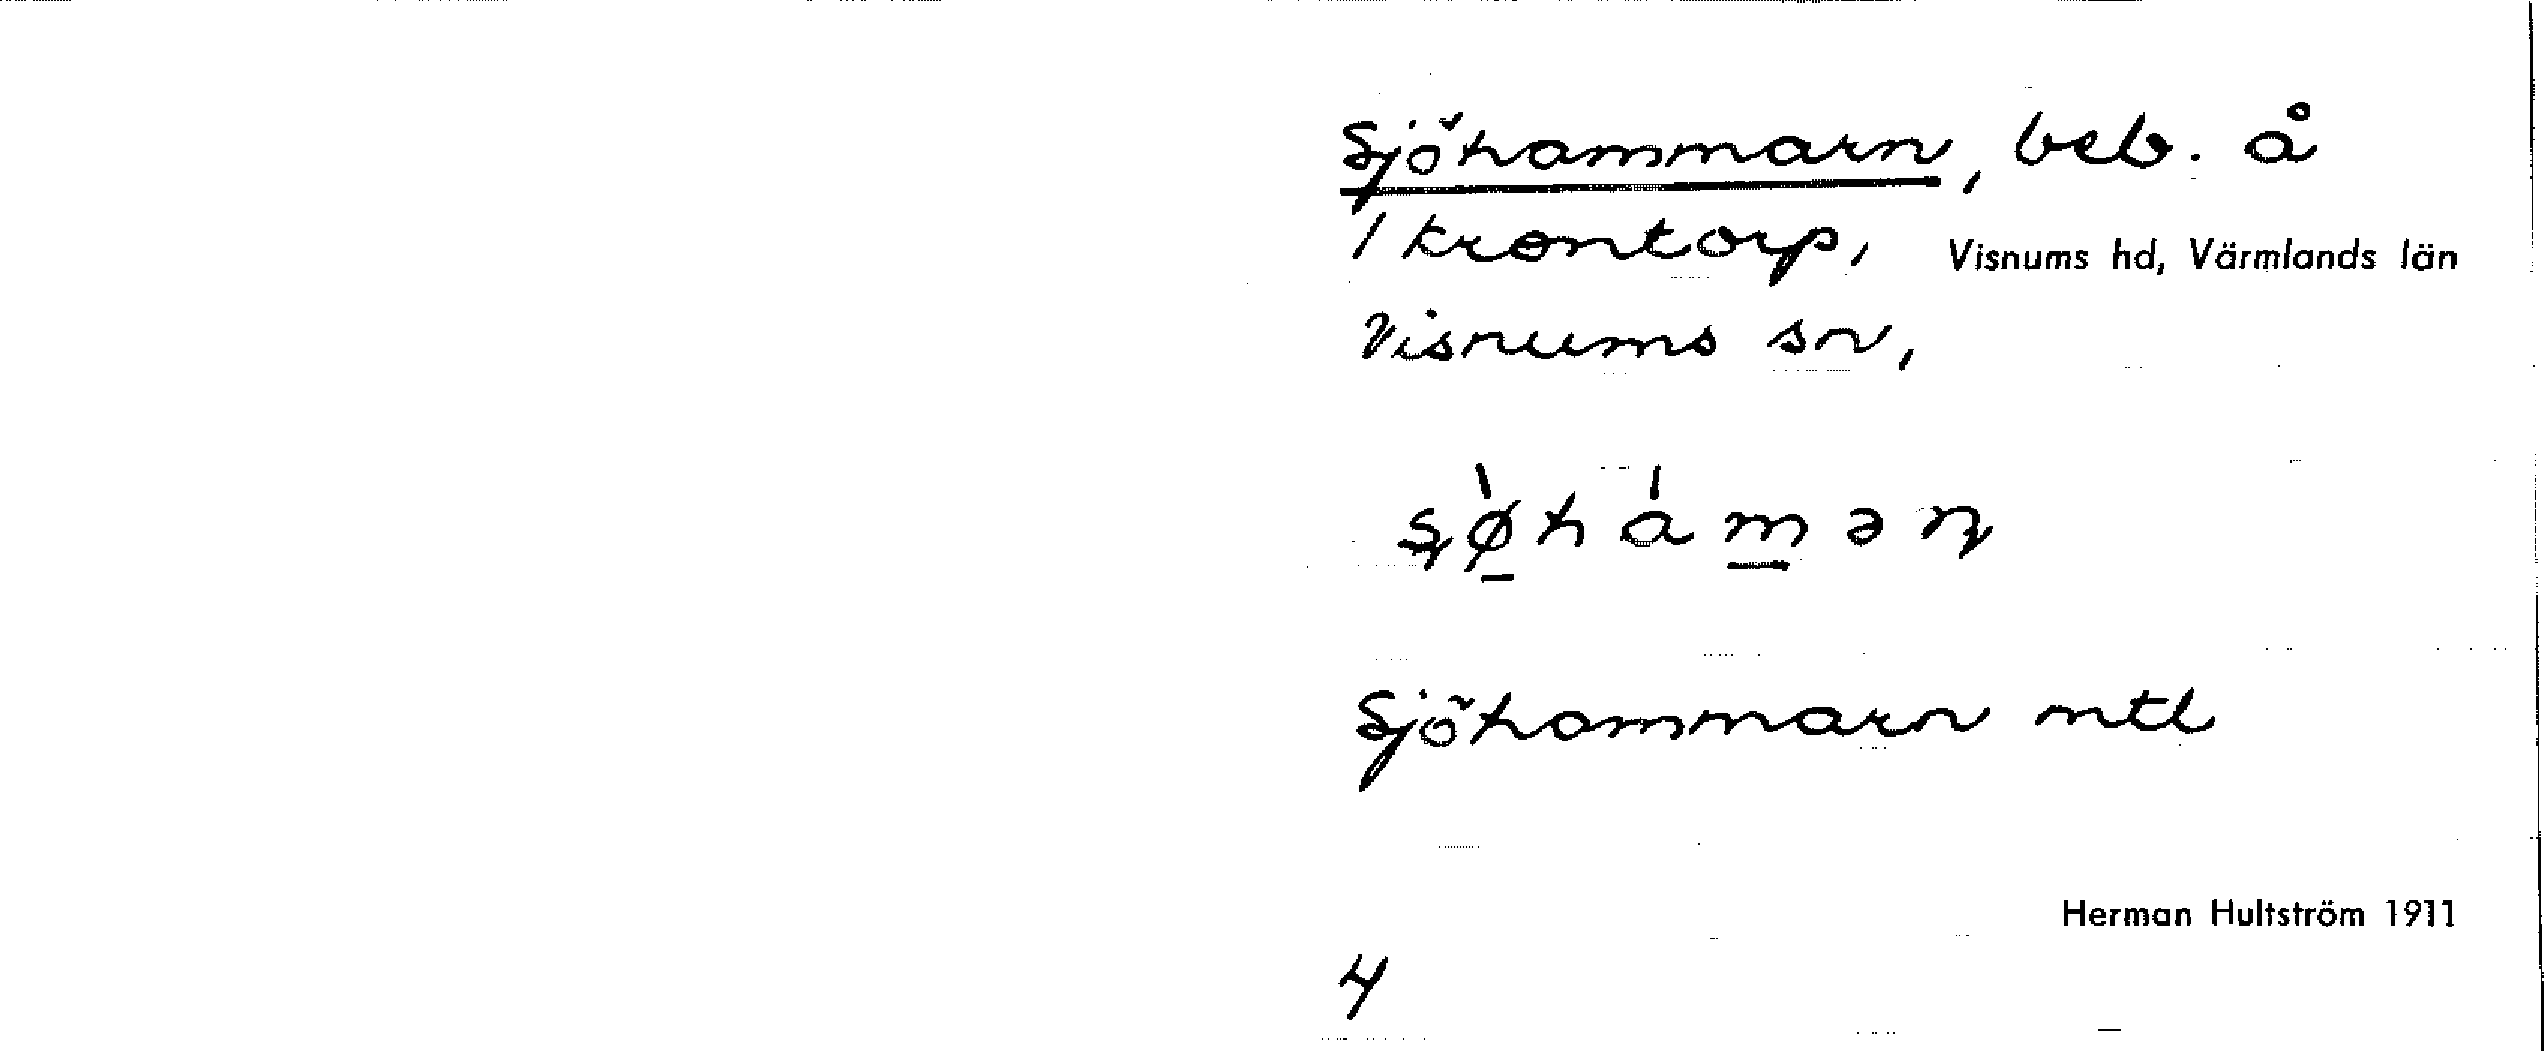 Sjöhammarn, beb. å
1 Krontorp, Visnums hd, Värmlands län
Visnums sn,
Sjöhammarn mtl
Herman Hultström 1911
4